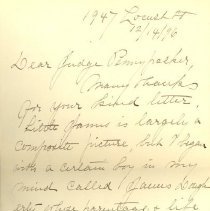 1947 Locust St
12/14/96
Dear Judge Pennypacker,
Many thanks
for your kind letter.
Little is largely a
composite picture, but I began
with a certain boy in my
mind called James Daugh
erty whose parentage & life